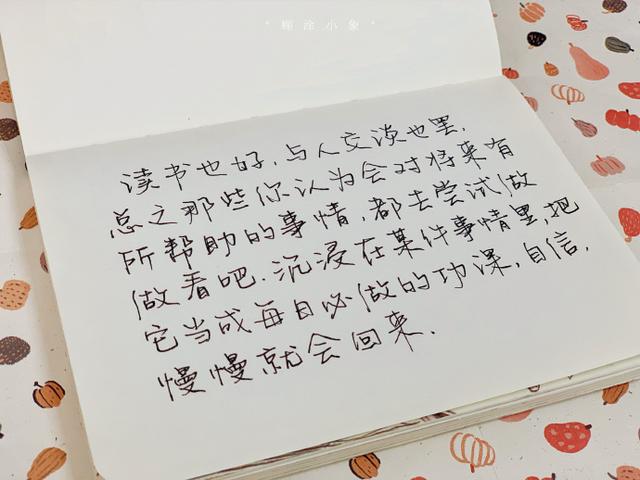 " 糊涂小象 "
读书也好，与人交谈也罢，
总之那些你认为会对将来有
所帮助的事情，都去尝试做
做看吧．沉浸在某件事情里，把
它当成每日必做的功课，自信，
慢慢就会回来．